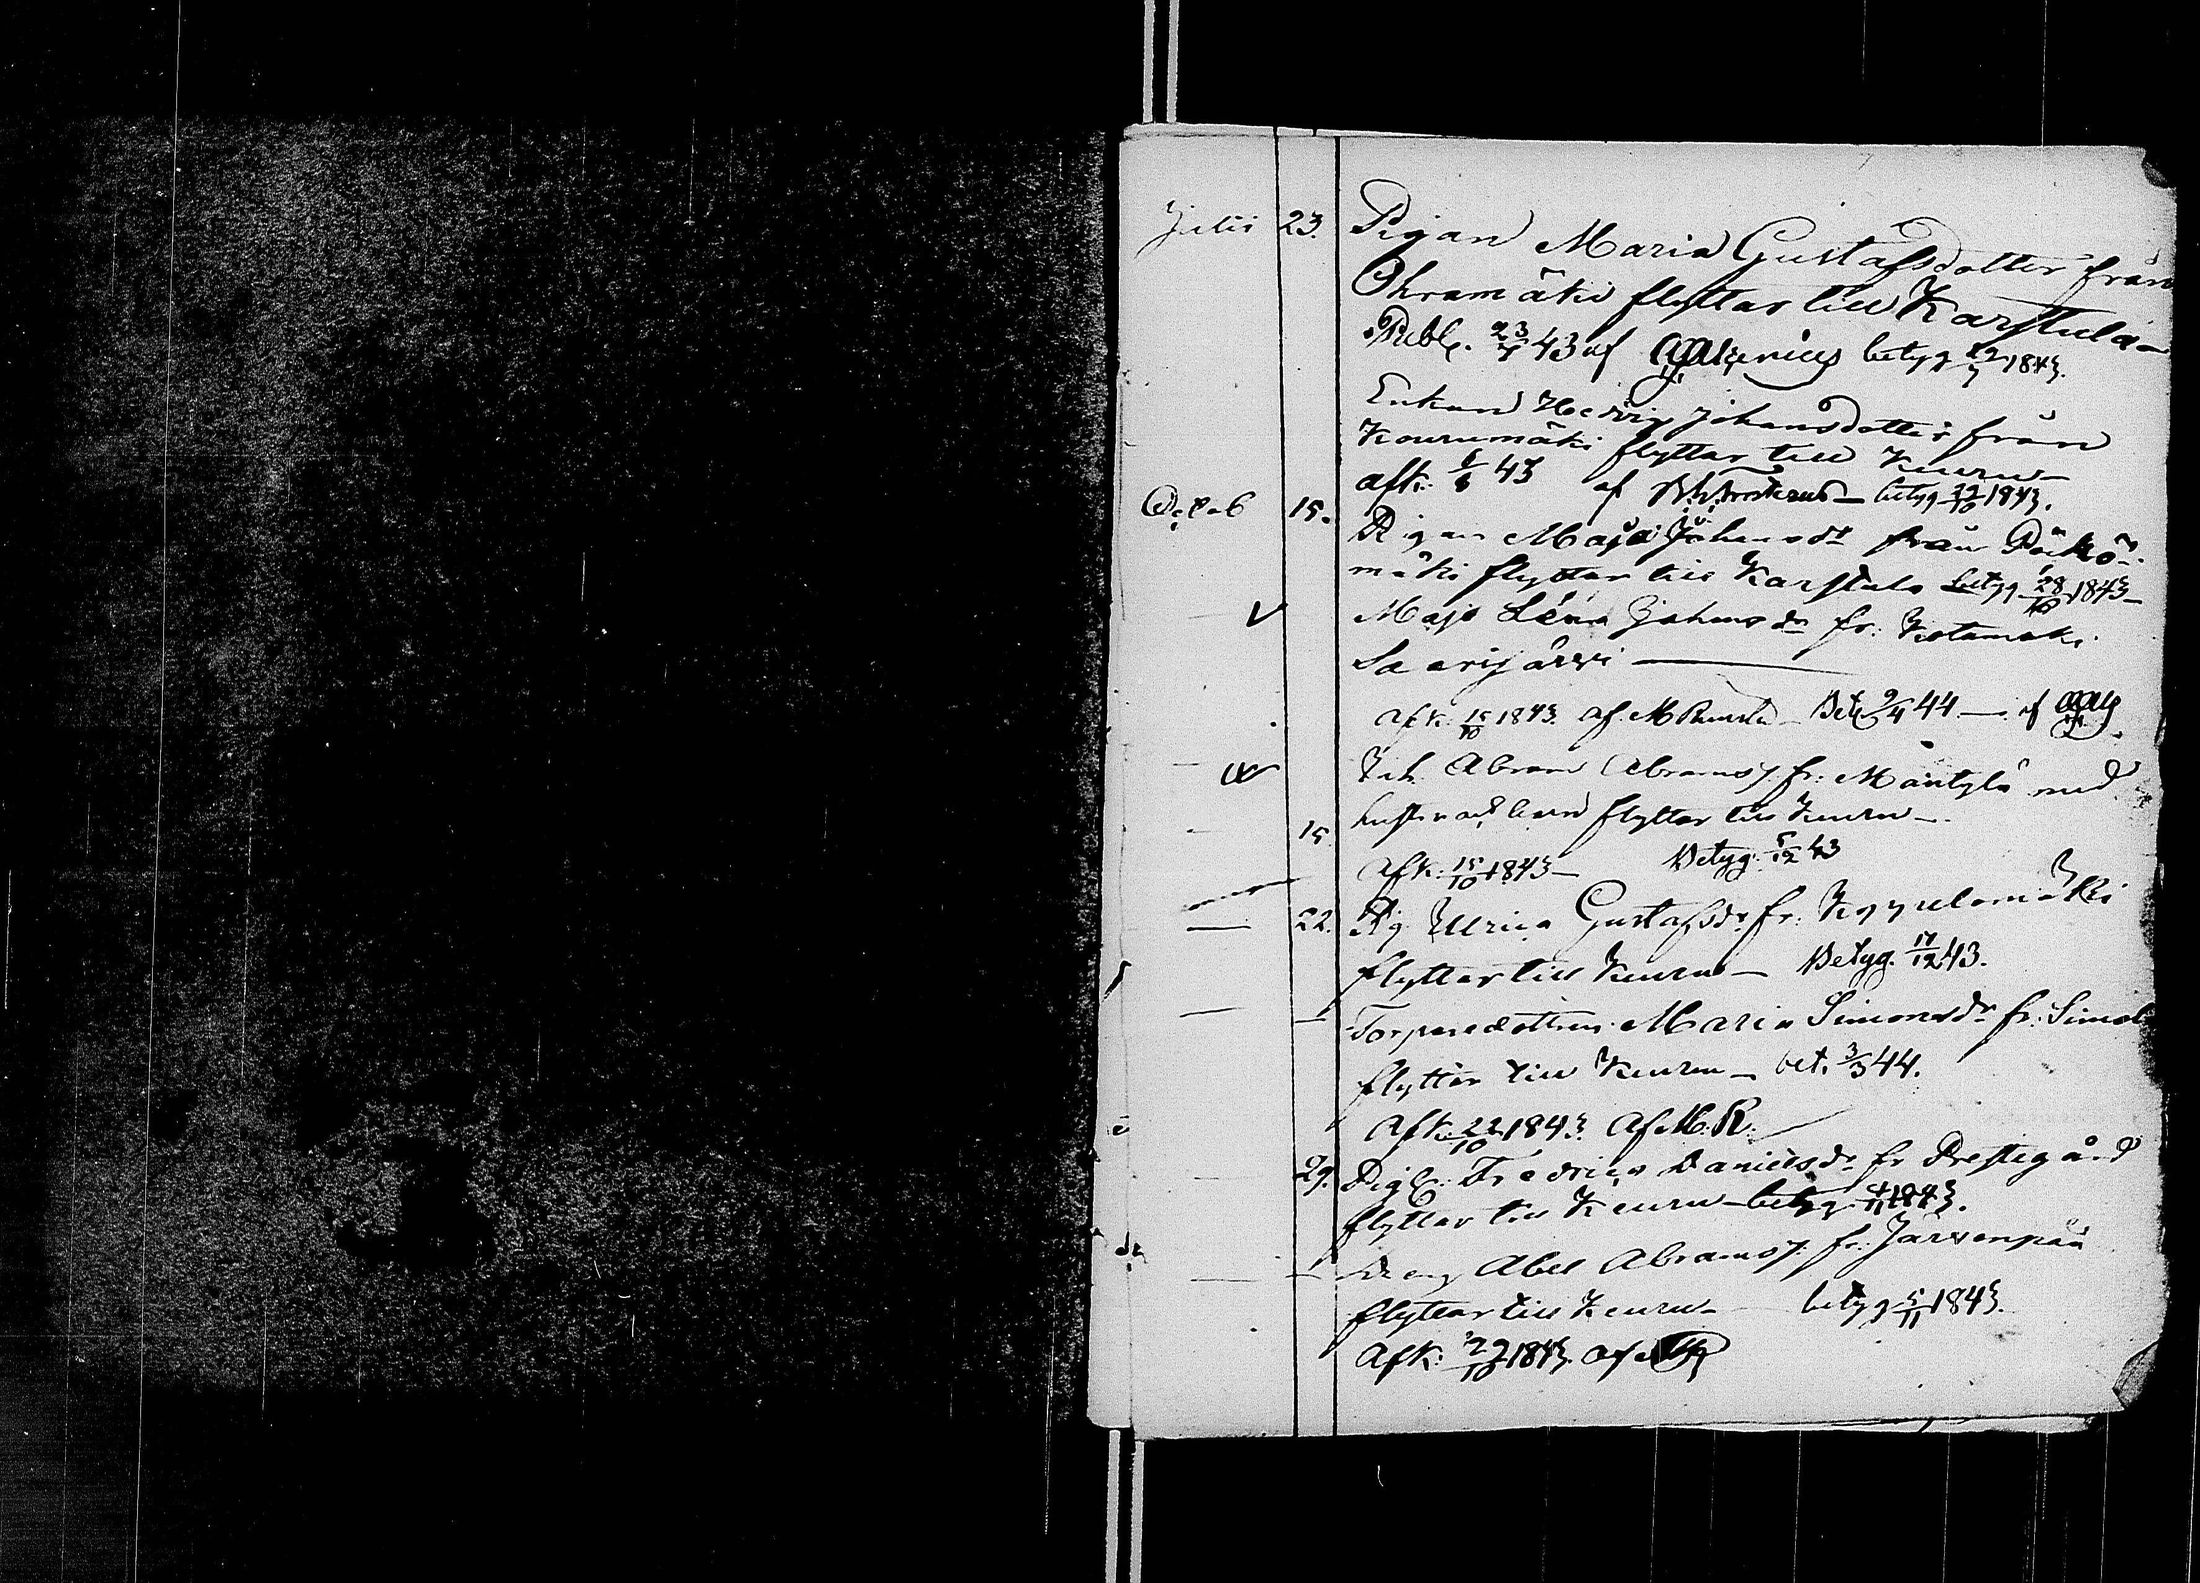 Julii 23. Pigan Maria Gustafsdotter från
Ohramäki flyttar till Karstula -
Publ. 23/7 43 af betyg 1843.
Enkan Hedvig Johansdotter från
Kourumäki flyttar till Keuru -
afk: 6/8 43 af betyg 22/10 1843.
Octob 15. Pigan Maja Johansdr från Pölkö-
mäki flyttar till Karstula betyg 28/10 1843 -
Maja Lena Johansdr fr: Kotamäki
Saarijärvi
Afk: 15/10 1843. af M Bet 9/4 44 - af
Inh. Abram Abramsz fr: Mäntylä med
15. hustru och barn flyttar till Keuru -
Afk: 15/10 1843 - Betyg: 5/12 43
22. Pig Ulrica Gustafsdr fr: Koppelomäki
flyttar till Keuru - Betyg. 17/12 43.
Torparedottren Maria Simonsdr fr: Simol
flyttar till Keuru - bet. 3/3 44.
Afk. 22/10 1843. Af M: R.
29. Pig: Fredrica Danielsdr fr Prestegård
flyttar till Keuru - betyg 4/11 1843.
Dreng Abel Abramsz fr: Järvenpää
flyttar till Keuru - betyg 5/11 1843.
Afk: 29/10 1843. af